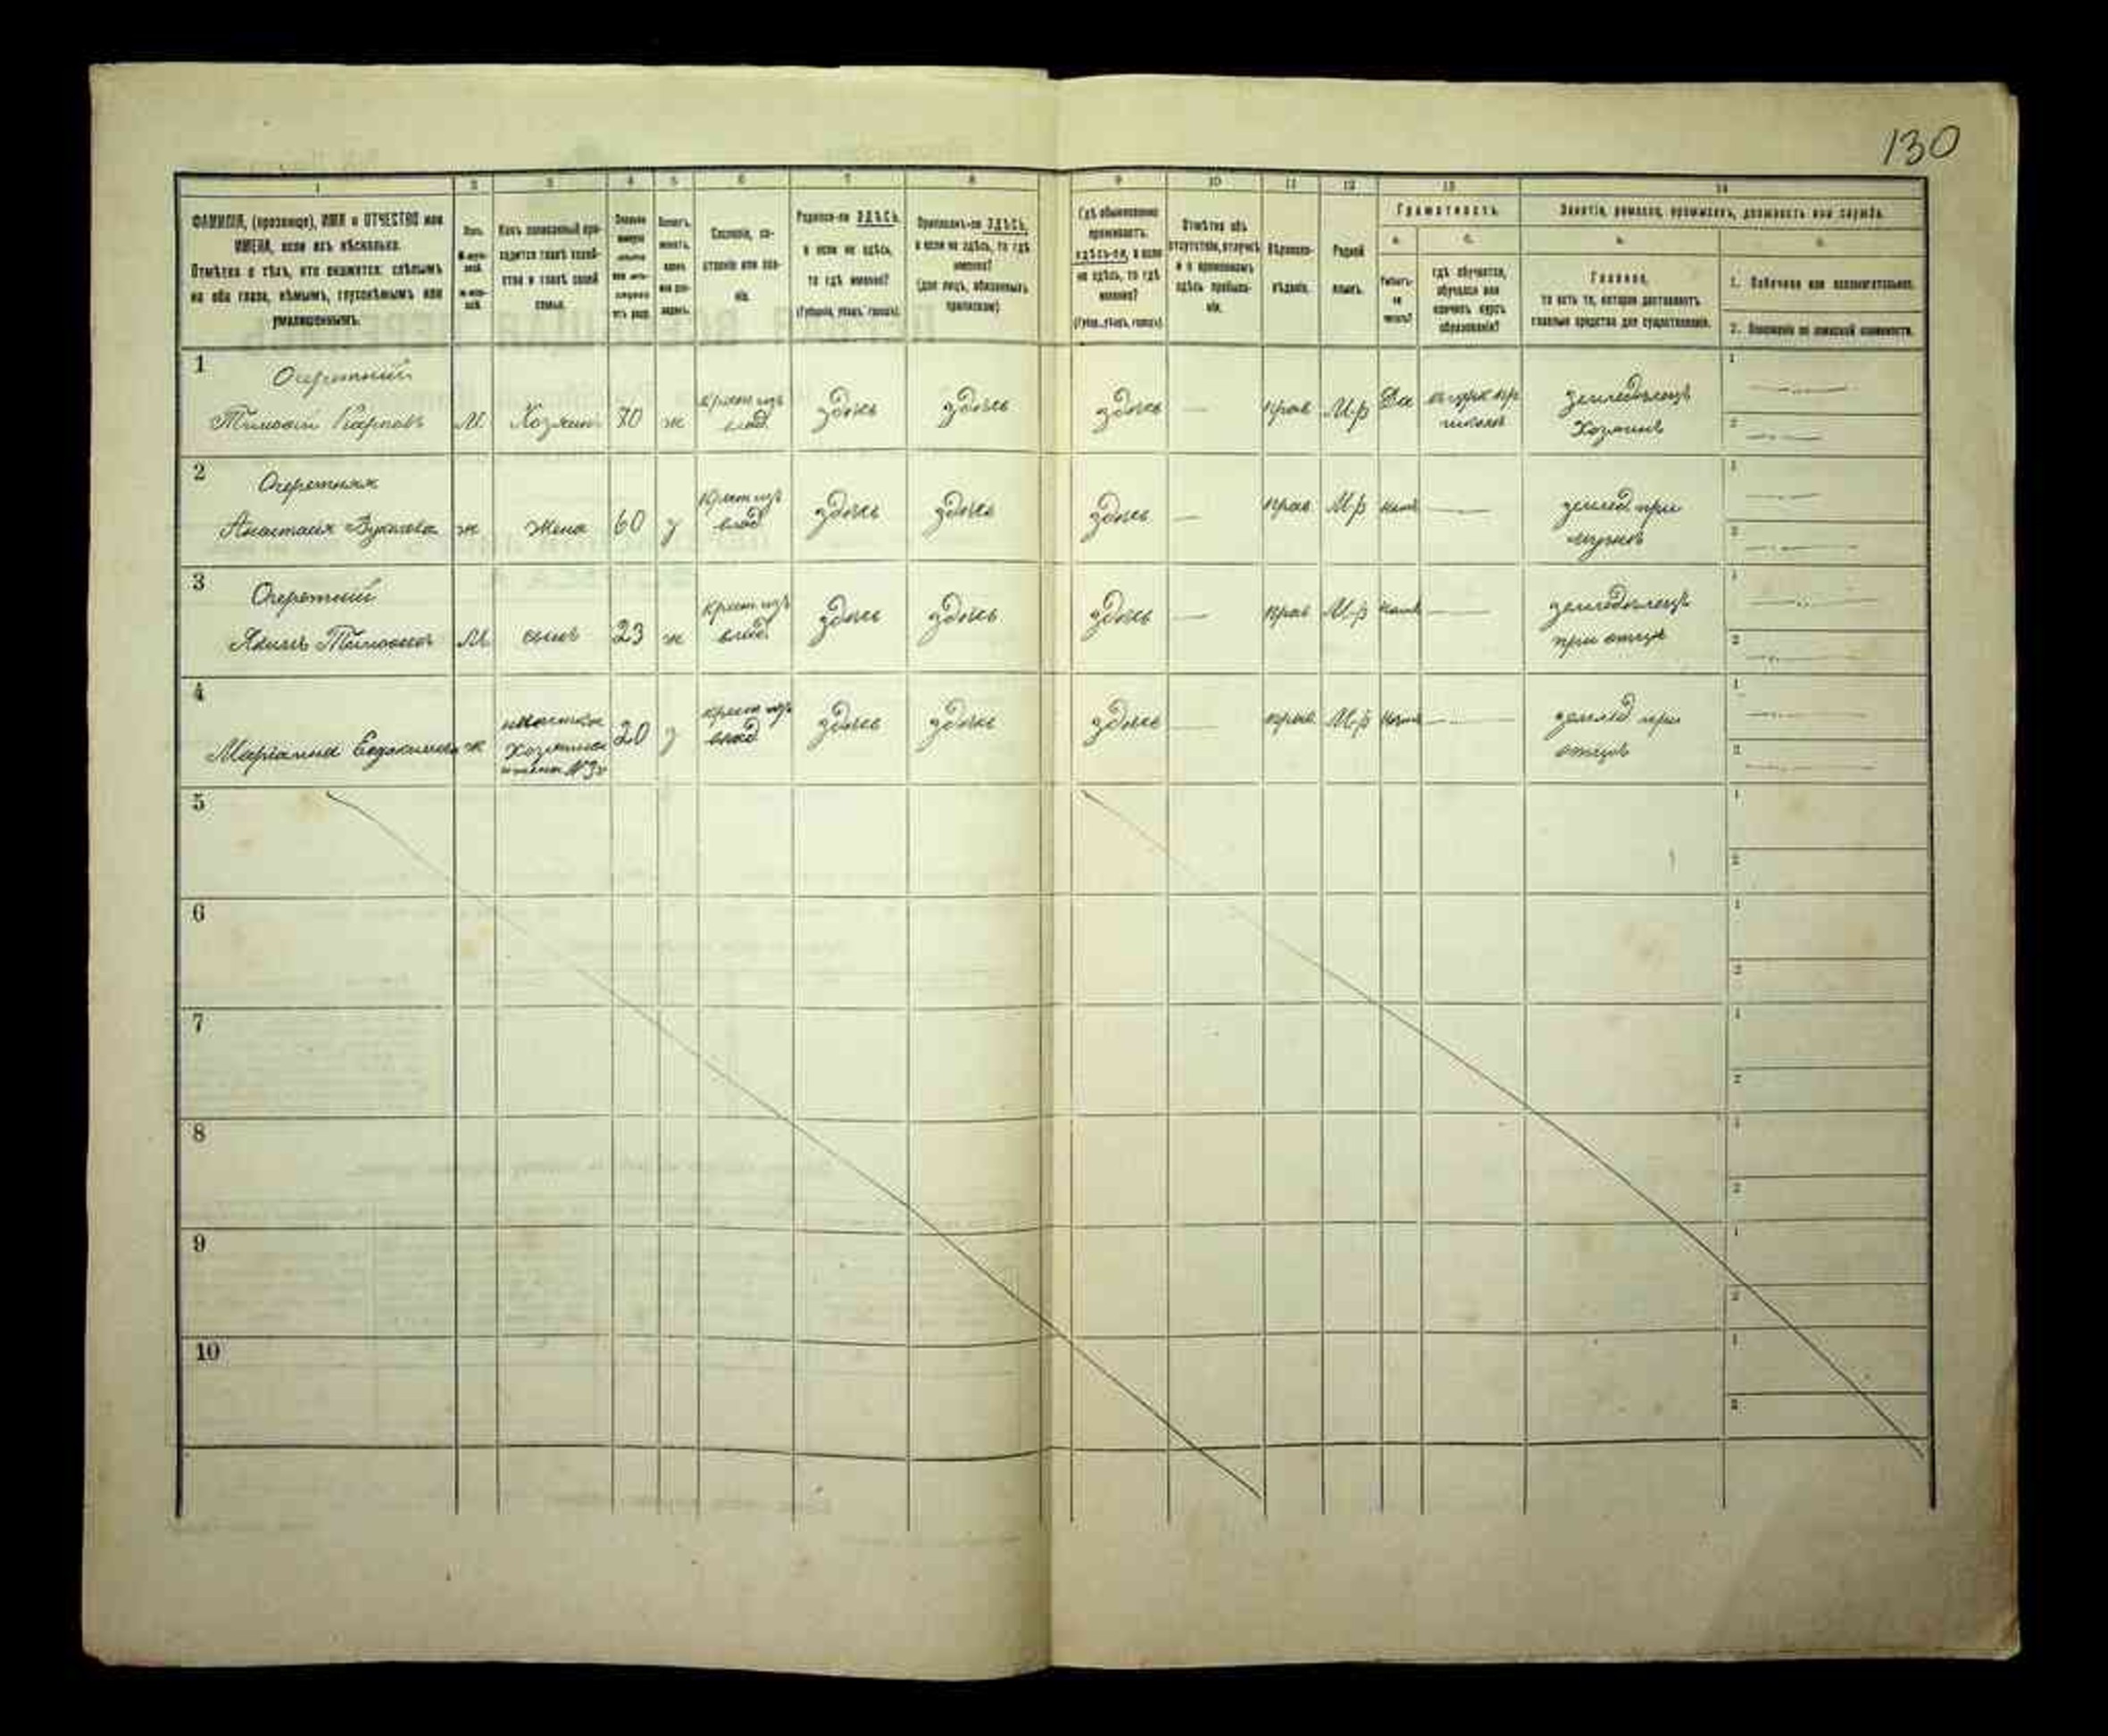 130
1 2 3 4 5 6 7 8 9 10 11 12 13 14
ФАМИЛІЯ, (прозвище), ИМЯ и ОТЧЕСТВО или
ИМЕНА, если ихъ нѣсколько.
Отмѣтка о тѣхъ, кто окажется: слѣпымъ
на оба глаза, нѣмымъ, глухонѣмымъ или
умалишеннымъ.
Полъ.
Какъ записанный при-
ходится главѣ хозяй-
ства и главѣ своей
семьи.
Сословіе, со-
стояніе или зва-
ніе.
Родился-ли ЗДѢСЬ,
а если не здѣсь,
то гдѣ именно?
(Губернія, уѣздъ, городъ).
Приписанъ-ли ЗДѢСЬ,
а если не здѣсь, то гдѣ
именно?
(для лицъ, обязанныхъ
припискою)
Гдѣ обыкновенно
проживаетъ:
здѣсь-ли, а если
не здѣсь, то гдѣ
именно?
(Губер., уѣздъ, городъ).
Отмѣтка объ
отсутствіи, отлучкѣ
и о временномъ
здѣсь пребыва-
ніи.
Вѣроиспо-
вѣданіе.
Родной
языкъ.
Грамотность.
а. б.
Умѣетъ-
ли
читать?
гдѣ обучается,
обучался или
кончилъ курсъ
образованія?
Занятіе, ремесло, промыселъ, должность или служба.
а. б.
Главное,
то есть то, которое доставляетъ
главныя средства для существованія.
1. Побочное или вспомогательное.
2. Положеніе по воинской повинности.
1
Очеретній
Тимофій Карповъ М Хозяинъ 70 ж крест изъ влад здѣсь здѣсь здѣсь — прав М-р Да
школѣ
земледѣлецъ
Хозяинъ
2
Очеретняя
Анастасія ж Жена 60 з Крест изъ влад здѣсь здѣсь здѣсь — прав М-р нѣтъ —
землед при
мужѣ
3
Очеретній
Якимъ Тимофеевъ М сынъ 23 ж крест изъ влад здѣсь здѣсь здѣсь — прав М-р нѣтъ —
земледѣлецъ
при отцѣ
4
невѣстка
Маріанна Евдокимова ж Хозяина 20 з крест изъ влад здѣсь здѣсь здѣсь — прав М-р нѣтъ —
жена №3
землед при
отцѣ
5
6
7
8
9
10